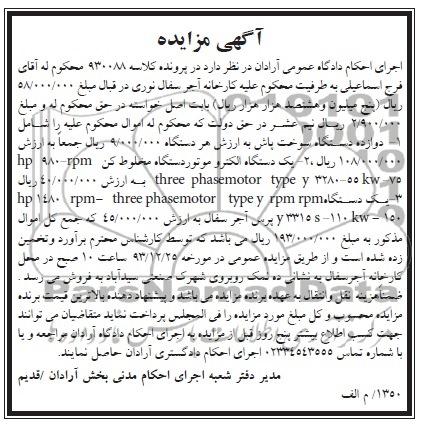 آگهی مزایده
اجرای احکام دادگاه عمومی آرادان در نظر دارد در پرونده کلاسه ۹۳۰۰۸۸ محکوم له آقای
فرج اسماعیلی به طرفیت محکوم علیه کارخانه آجر سفال نوری در قبال مبلغ ۵۸/۰۰۰/۰۰۰
ریال (پنج میلیون و هشتصد هزار هزار ریال) بابت اصل خواسته در حق محکوم له و مبلغ
۲/۹۰۰/۰۰۰ ریال نیم عشر در حق دولت که محکوم له اموال محکوم علیه را شامل
۱- دوازده دستگاه سوخت پاش به ارزش هر دستگاه ۹/۰۰۰/۰۰۰ ریال جمعاً به ارزش
۱۰۸/۰۰۰/۰۰۰ ریال ۲- یک دستگاه الکترو موتور دستگاه مخلوط کن hp ۹۸۰-rpm
۷۵- three phasemotor type y ۳۲۸۰-۵۵ kw به ارزش ۴۰/۰۰۰/۰۰۰ ریال
۳- یک دستگاه hp ۱۴۸۰ rpm- three phasemotor type y rpm rpm
۱۵۰ - y ۳۳۱۵ s -۱۱۰ kw پرس آجر سفال به ارزش ۴۵/۰۰۰/۰۰۰ که جمع کل اموال
مذکور به مبلغ ۱۹۳/۰۰۰/۰۰۰ ریال می باشد که توسط کارشناس محترم برآورد و تخمین
زده شده است و از طریق مزایده عمومی در مورخه ۹۳/۱۲/۲۵ ساعت ۱۰ صبح در محل
کارخانه آجر سفال به نشانی ده نمک روبروی شهرک صنعتی سیدآباد به فروش می رسد.
ضمنا هزینه نقل و انتقال به عهده برنده مزایده می باشد و پیشنهاد دهنده بالاترین قیمت برنده
مزایده محسوب و کل مبلغ مورد مزایده را فی المجلس پرداخت نماید متقاضیان می توانند
جهت کسب اطلاع بیشتر پنج روز قبل از مزایده به اجرای احکام دادگاه آرادان مراجعه و یا
با شماره تماس ۰۲۳۳۴۵۴۳۵۵۵ اجرای احکام دادگستری آرادان حاصل نمایند.
مدیر دفتر شعبه اجرای احکام مدنی بخش آرادان /قدیم
۱۳۵۰/ م الف